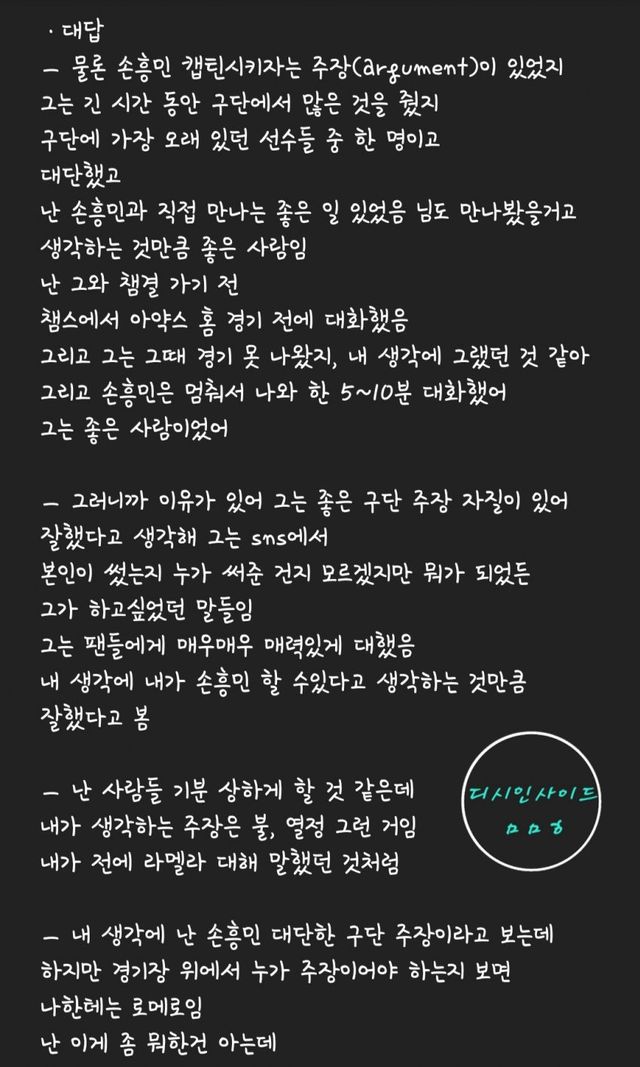 · 대답
– 물론 손흥민 캡틴시키자는 주장(argument)이 있었지
그는 긴 시간 동안 구단에서 많은 것을 줬지
구단에 가장 오래 있던 선수들 중 한 명이고
대단했고
난 손흥민과 직접 만나는 좋은 일 있었음 님도 만나봤을거고
생각하는 것만큼 좋은 사람임
난 그와 챔결 가기 전
챔스에서 아약스 홈 경기 전에 대화했음
그리고 그는 그때 경기 못 나왔지, 내 생각에 그랬던 것 같아
그리고 손흥민은 멈춰서 나와 한 5~10분 대화했어
그는 좋은 사람이었어
– 그러니까 이유가 있어 그는 좋은 구단 주장 자질이 있어
잘했다고 생각해 그는 sns에서
본인이 썼는지 누가 써준 건지 모르겠지만 뭐가 되었든
그가 하고싶었던 말들임
그는 팬들에게 매우매우 매력있게 대했음
내 생각에 내가 손흥민 할 수있다고 생각하는 것만큼
잘했다고 봄
– 난 사람들 기분 상하게 할 것 같은데
내가 생각하는 주장은 불, 열정 그런 거임
내가 전에 라멜라 대해 말했던 것처럼
디시인사이드
ㅁㅁㅎ
– 내 생각에 난 손흥민 대단한 구단 주장이라고 보는데
하지만 경기장 위에서 누가 주장이어야 하는지 보면
나한테는 로메로임
난 이게 좀 뭐한건 아는데